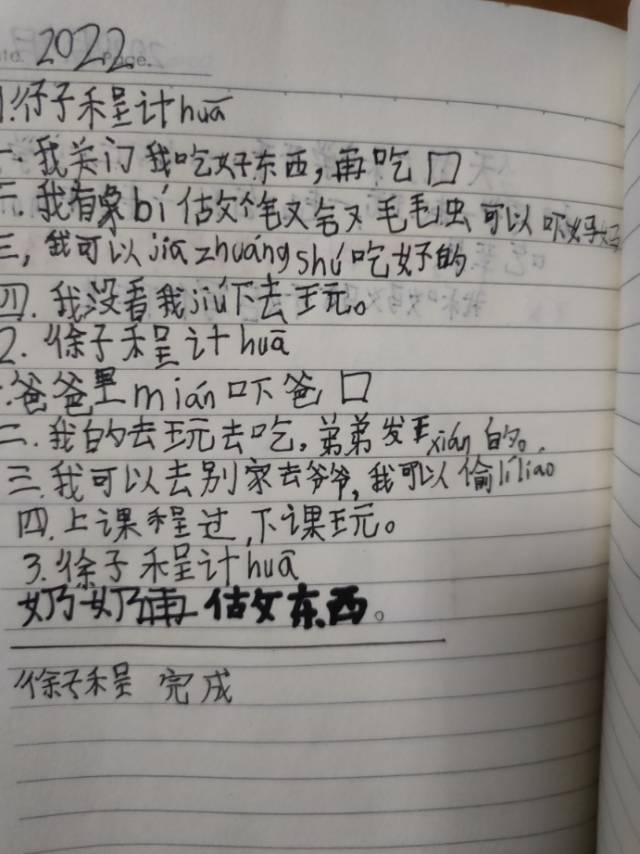 2022
1.徐子程计huā
一.我关门我吃好东西,再吃口
二.我有象bí估做毛毛虫可以吓妈妈
三,我可以jiǎ zhuáng shú吃好的
四.我没看我jiú下去玩。
2.徐子程计huā
爸爸里mián吓爸口
二.我的去玩去吃,弟弟发王xián的。
三.我可以去别家去爷爷,我可以偷líliáo
四.上课程过,下课玩。
3.徐子程计huā
奶奶再估做东西。
徐子程 完成